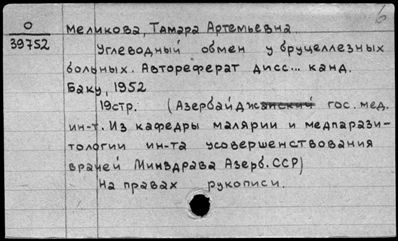 6
О Меликова, Тамара Артемьевна.
39752
Углеводный обмен у бруцеллезных
больных. Автореферат дисс... канд.
Баку, 1952
19стр. (Азербайджанский гос. мед.
ин-т. Из кафедры малярии и медпарази-
тологии ин-та усовершенствования
врачей Минздрава Азерб. ССР)
На правах рукописи.